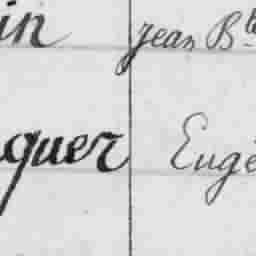 in jean Bte
quer Eugè